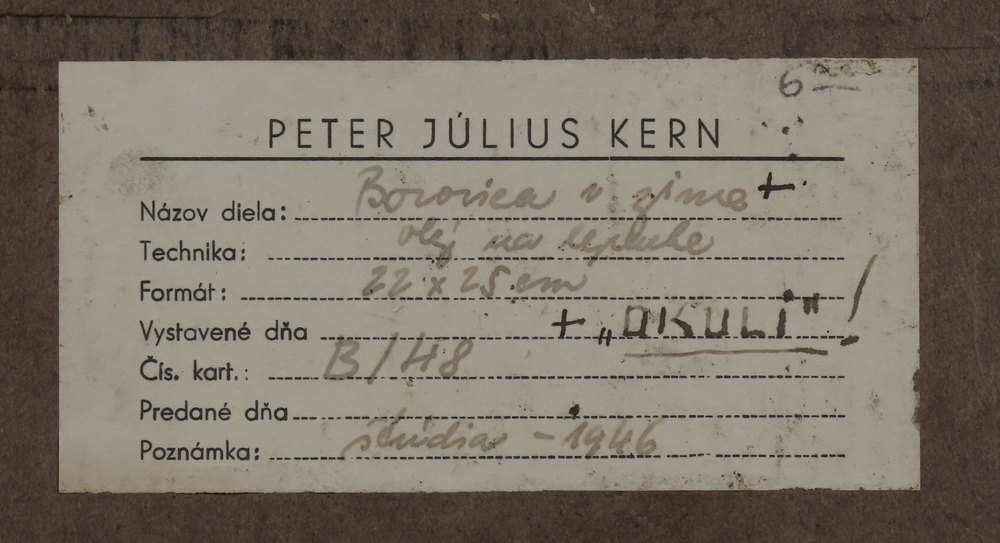 6 —
PETER JÚLIUS KERN
Názov diela: Borovica v zime +
Technika: olej na lepenke
Formát: 22 x 25 cm
Vystavené dňa + „OKULI" !
Čís. kart.: B/48
Predané dňa
Poznámka: študia - 1946